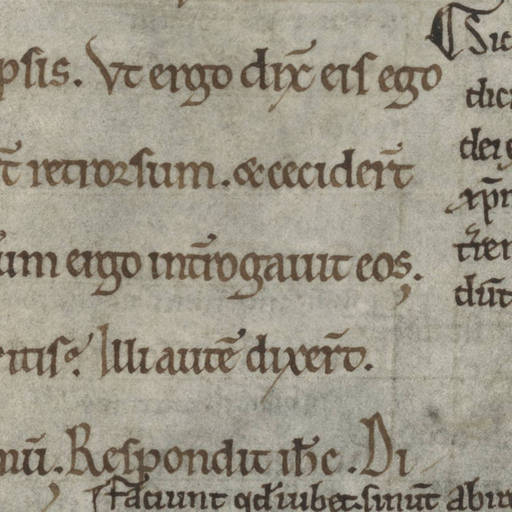 psis. Vt ergo dix̄ eis ego
t̄ retrorsum. & cecider̄t
um ergo int̄rogauit eos.
ritis? Illi autē dixer̄t.
nū. Respondit ih̄c. Di
faciunt qđ iubet. sinūt abir
Sic
dic
dei
xp̄i
dūt